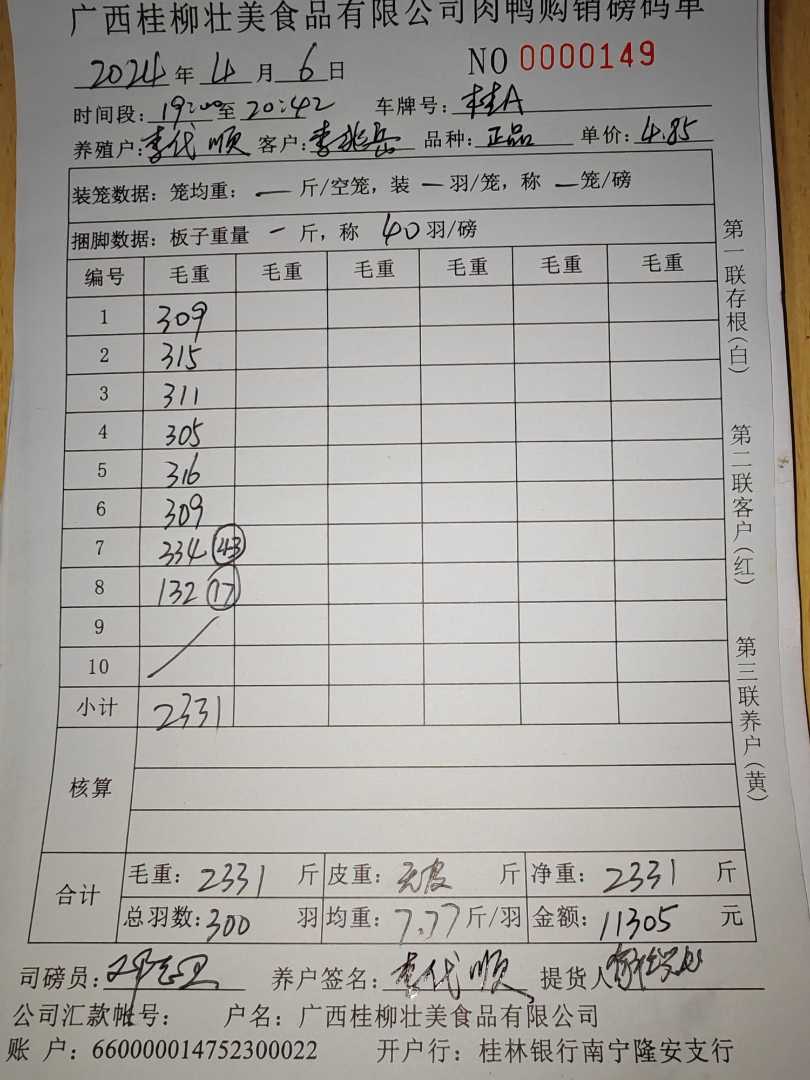 广西桂柳壮美食品有限公司肉鸭购销磅码单
2024年4月6日 NO 0000149
时间段:19:00至20:42 车牌号:桂A
养殖户:李代顺 客户:李兆岳 品种:正品 单价:4.85
装笼数据:笼均重:一斤/空笼,装一羽/笼,称一笼/磅
捆脚数据:板子重量一斤,称40羽/磅
编号 毛重 毛重 毛重 毛重 毛重 毛重
1 309
2 315
3 311
4 305
5 316
6 309
7 334 43
8 132 17
9
10
小计 2331
核算
合计 毛重:2331斤 皮重:无皮斤 净重:2331斤
总羽数:300羽 均重:7.77斤/羽 金额:11305元
司磅员: 养户签名:李代顺 提货人
公司汇款帐号: 户名:广西桂柳壮美食品有限公司
账户:660000014752300022 开户行:桂林银行南宁隆安支行
第一联存根(白)
第二联客户(红)
第三联养户(黄)